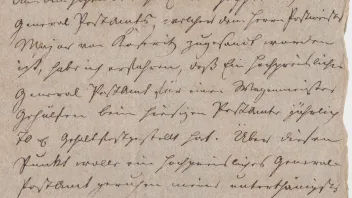 General Postamts, welches dem Herrn Postmeister
Major von Koseritz zugesandt worden
ist, habe ich ersehen, daß Ein Hochpreisliches
General Postamt für einen Wagenmeister
Gehülfen beim hiesigen Postamte jährlich
70 Gehalt festgestellt hat. Über diesen
Punkt wolle ein Hochpreisliches General-
Postamt geruhen meine unterthänigste